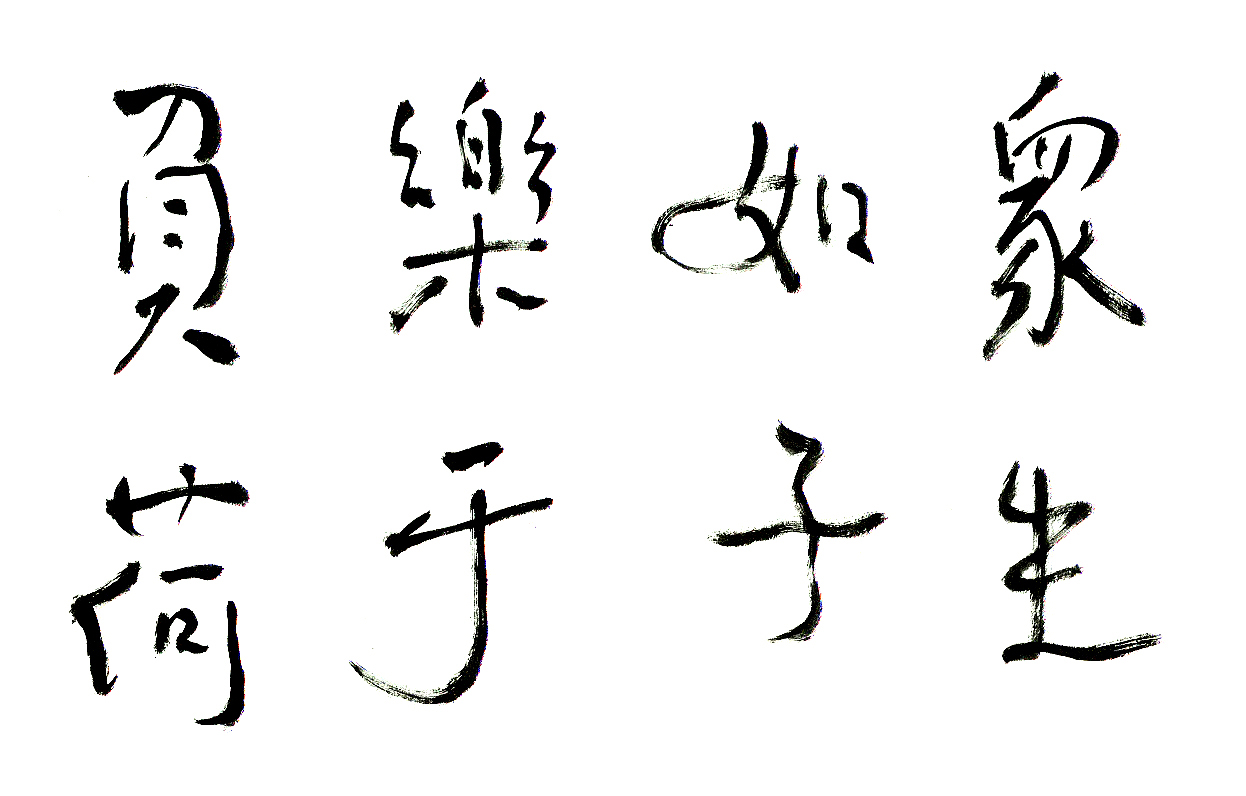 眾生
如子
樂于
負荷